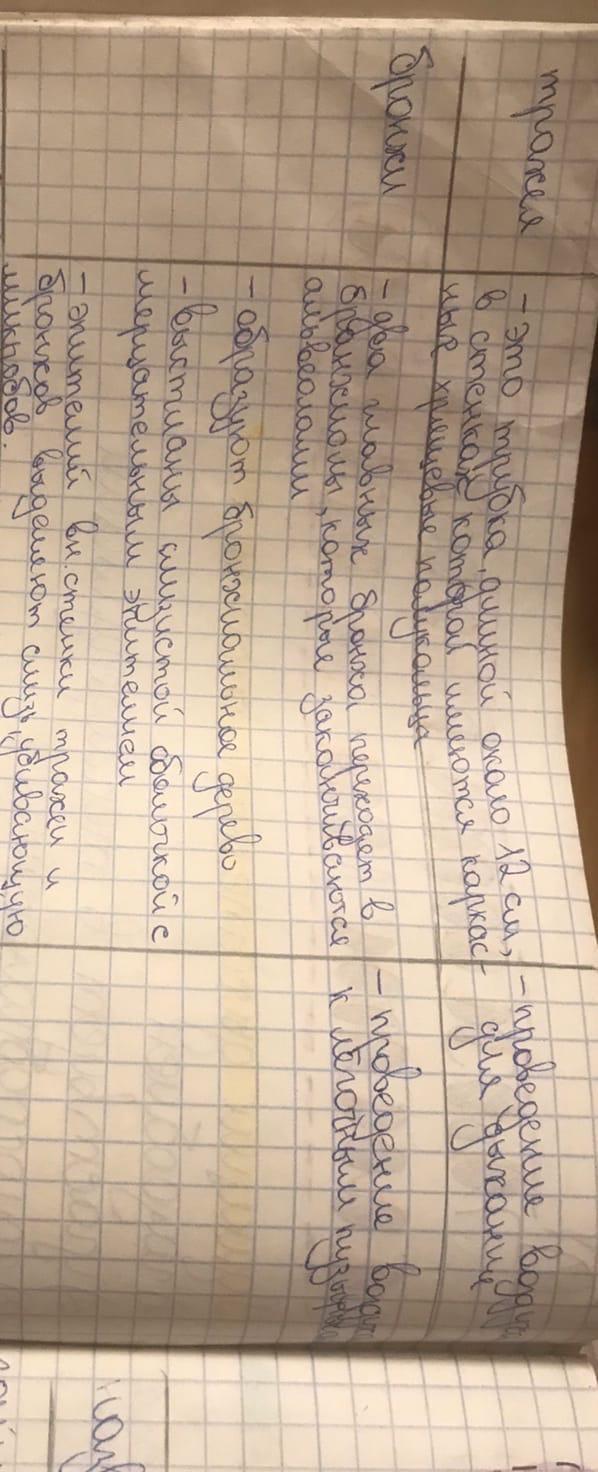 трахея
- это трубка, длиной около 12 см,
в стенках которой имеются каркас-
ные хрящевые полукольца
- проведение
для дыхания
бронхи
- два главных бронха переходят в
бронхиолы, которые заканчиваются
альвеолами
- образуют бронхиальное дерево
- выстланы слизистой оболочкой с
мерцательным эпителием
- эпителий вн. стенки трахеи и
бронхов выделяют слизь, убивающую
микробов.
- проведение
к лёгочным